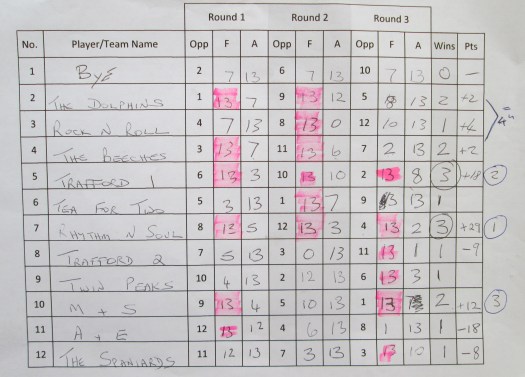 Round 1 Round 2 Round 3
No. Player/Team Name Opp F A Opp F A Opp F A Wins Pts
1 Bye 2 7 13 6 7 13 10 7 13 0 -
2 The Dolphins 1 13 7 9 13 12 5 8 13 2 +2
3 Rock N Roll 4 7 13 8 13 0 12 10 13 1 +4
4 The Beeches 3 13 7 11 13 6 7 2 13 2 +2
5 Trafford 1 6 13 3 10 13 10 2 13 8 3 +18 2
6 Tea For Two 5 3 13 1 13 7 9 3 13 1
7 Rhythm N Soul 8 13 5 12 13 3 4 13 2 3 +29 1
8 Trafford 2 7 5 13 3 0 13 11 13 1 1 -9
9 Twin Peaks 10 4 13 2 12 13 6 13 3 1
10 M + S 9 13 4 5 10 13 1 13 2 +12 3
11 A + E 12 13 12 4 6 13 8 1 13 1 -18
12 The Spaniards 11 12 13 7 3 13 3 13 10 1 -8